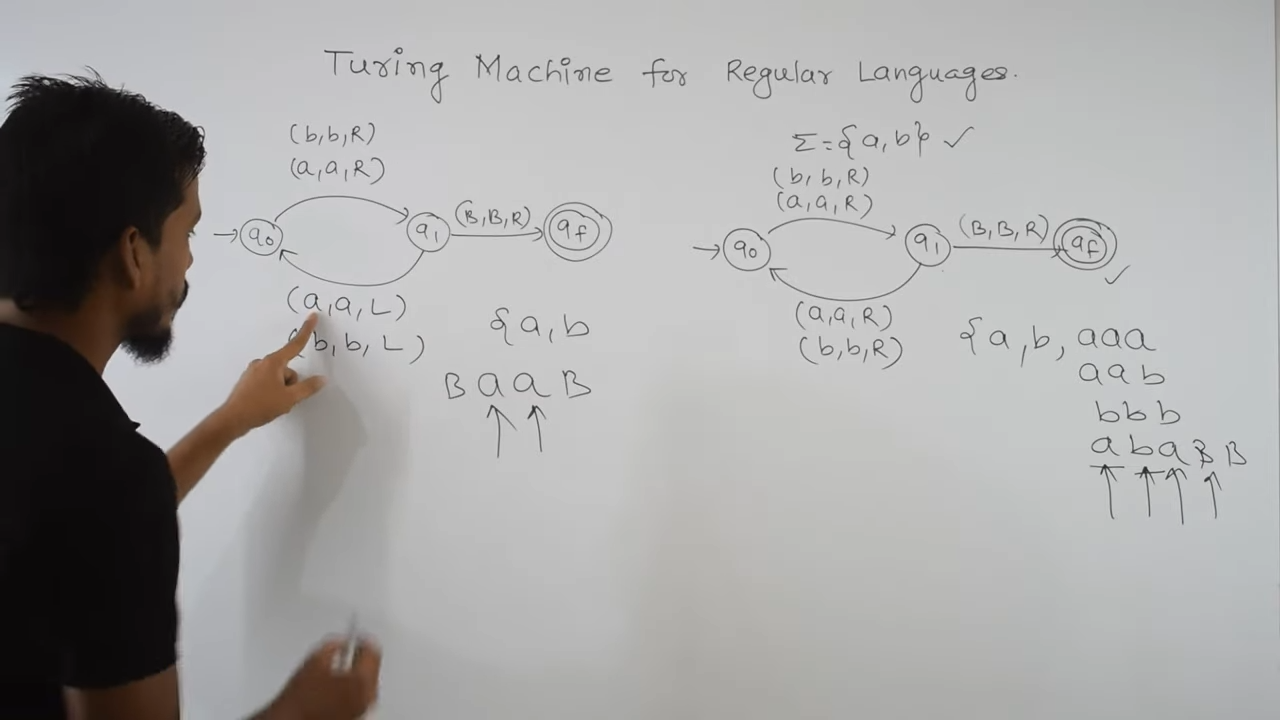 Turing Machine for Regular Languages.
(b,b,R)
(a,a,R)
→ q₀
q₁
(B,B,R)
q_f
(a,a,L)
(b,b,L)
{a,b
B a a B
Σ={a,b} ✓
(b,b,R)
(a,a,R)
→ q₀
q₁
(B,B,R)
q_f
✓
(a,a,R)
(b,b,R)
{a,b, aaa
aab
bbb
abaBB